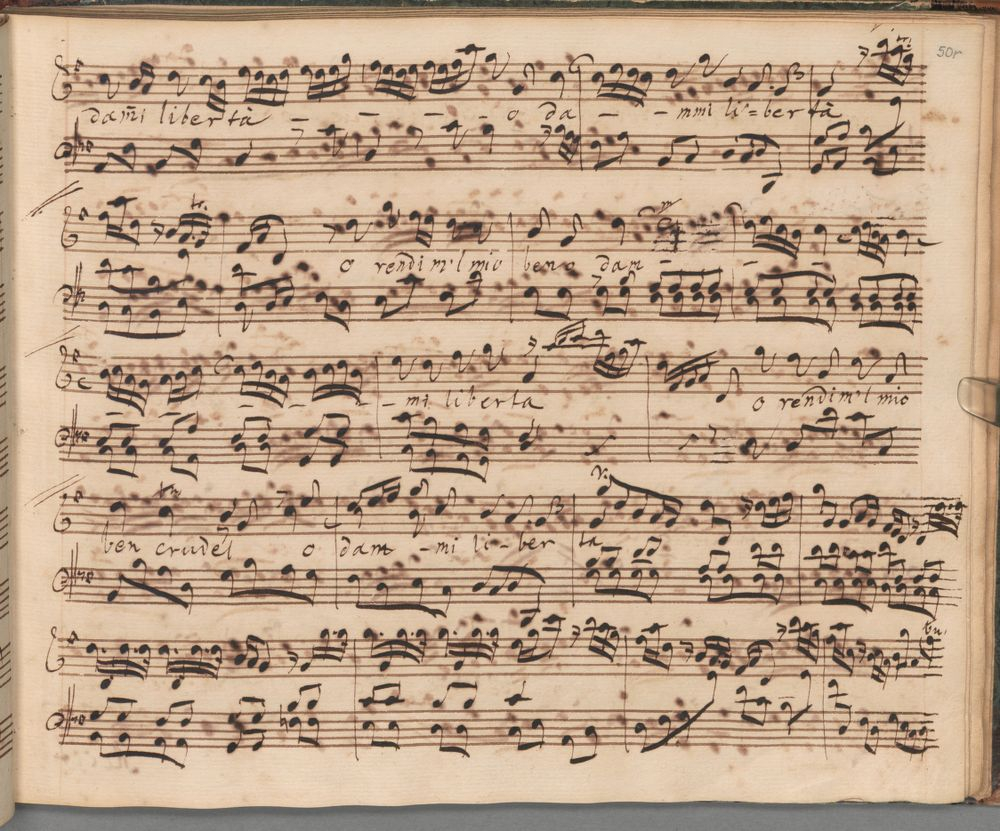 50r
tr.
dam̄i libertà - - - - - o da - - mmi li=ber tà
tr.
o rendim'l mio ben o dam - - -
- - - - mi liberta o rendim'l mio
ben crudel o dam - mi li - ber ta